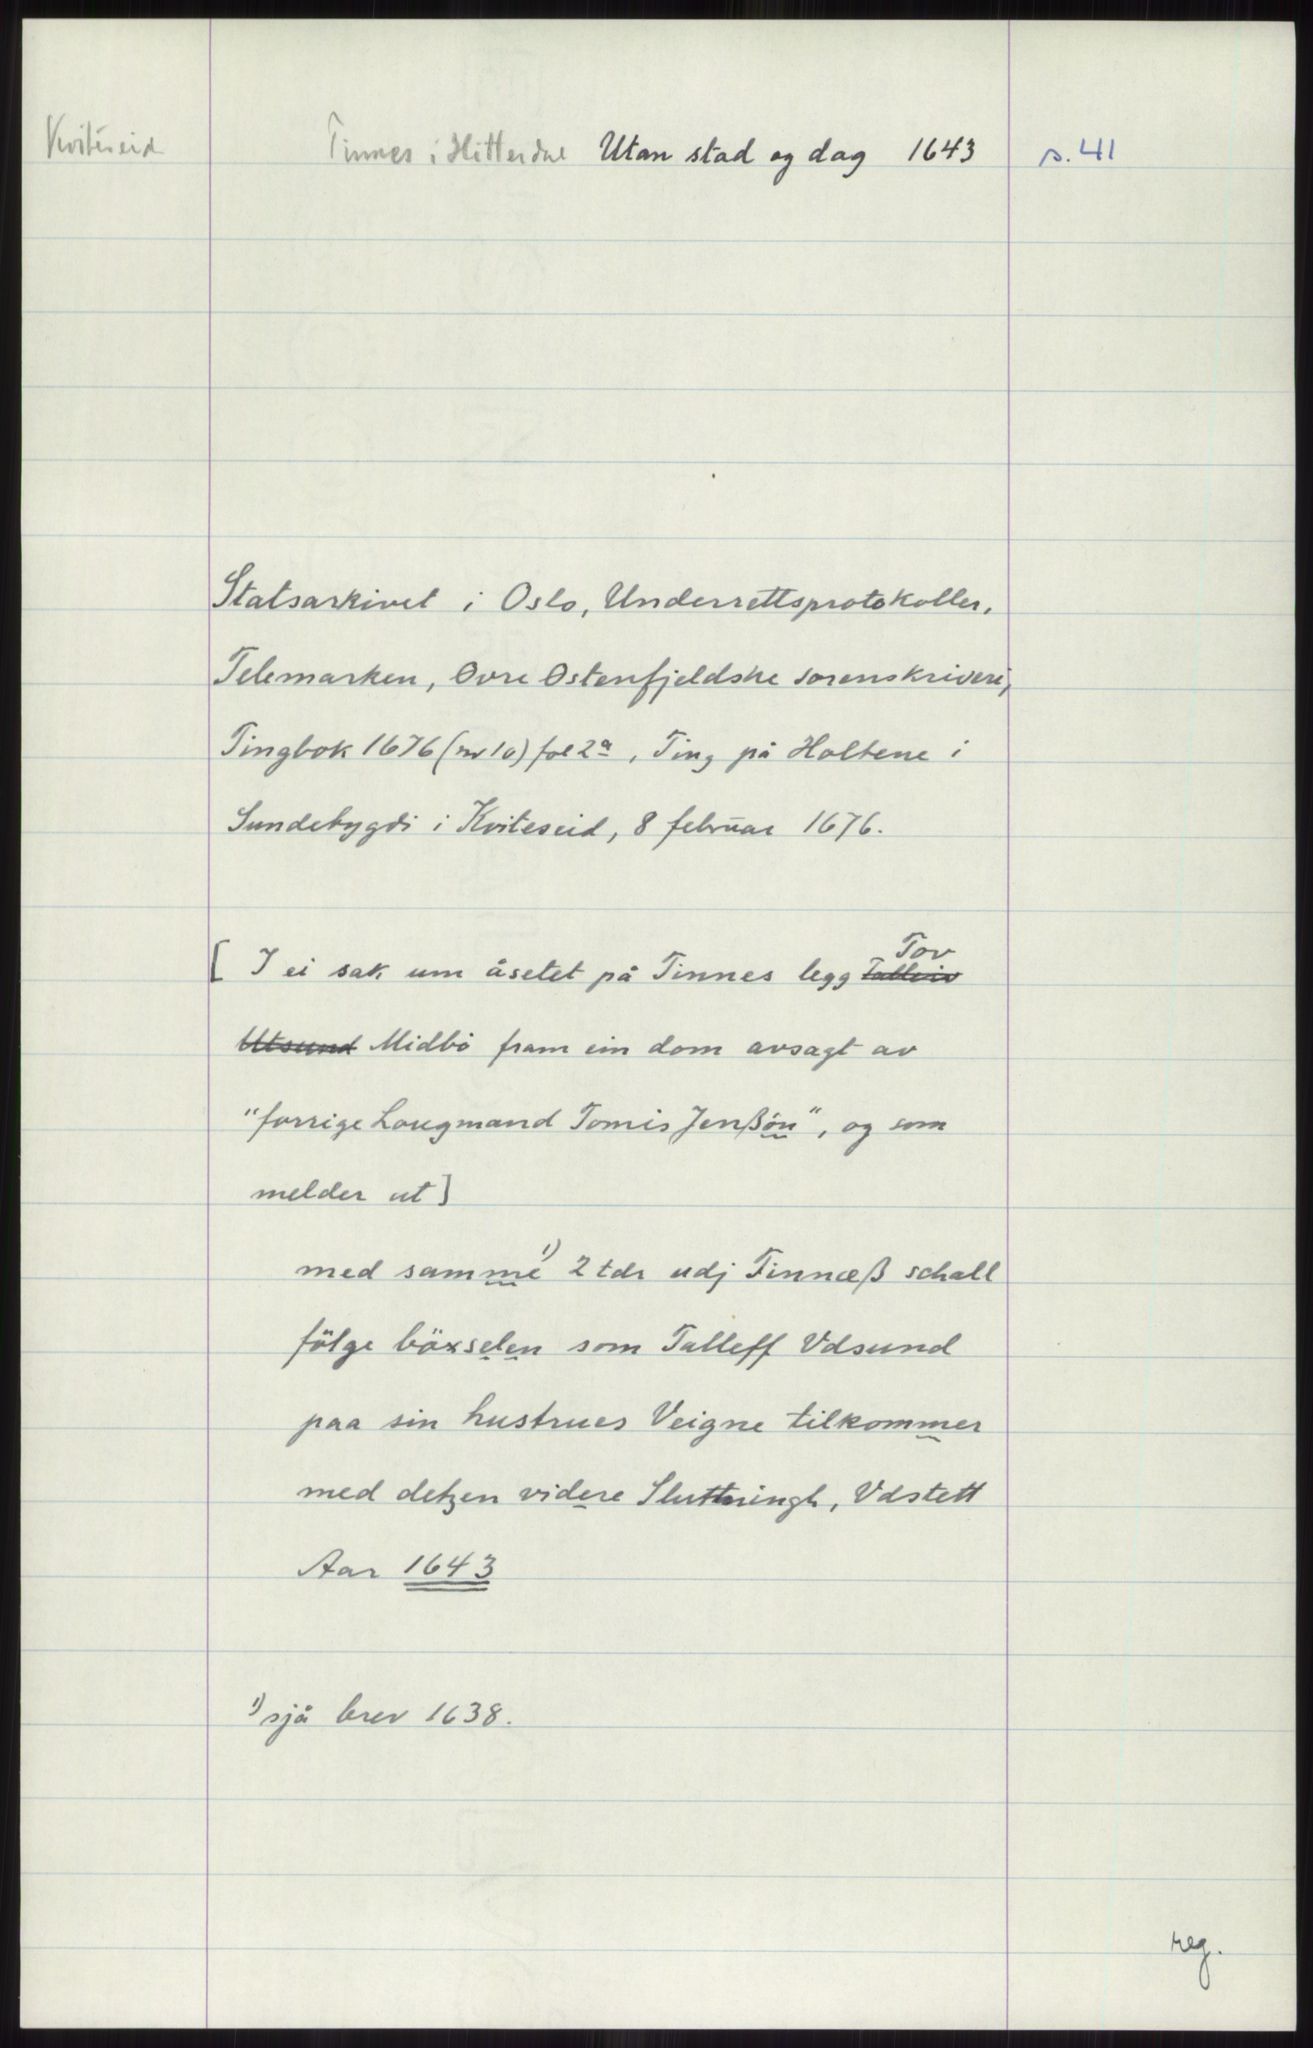 Kviteseid Tinnes i Hitterdal Utan stad og dag 1643 s. 41
Statsarkivet i Oslo, Underrettsprotokoller,
Telemarken, Øvre Østenfjeldske sorenskriveri,
Tingbok 1676 (nr 10) fol 2a, Ting på Holtene i
Sundebygdi i Kviteseid, 8 februar 1676.
Tov
[ I ei sak um åsetet på Tinnes legg Talleiv
Utsund Midbö fram ein dom avsagt av
"forrige Laugmand Tomis Jenßön", og som
melder ut]
med samme 1) 2 tdr udj Tinnæß schall
fölge böxselen som Talleff Vdsund
paa sin hustrues Veigne tilkommer
med detzen videre Sluttningh, Vdstett
Aar 1643
1) sjå brev 1638.
reg.